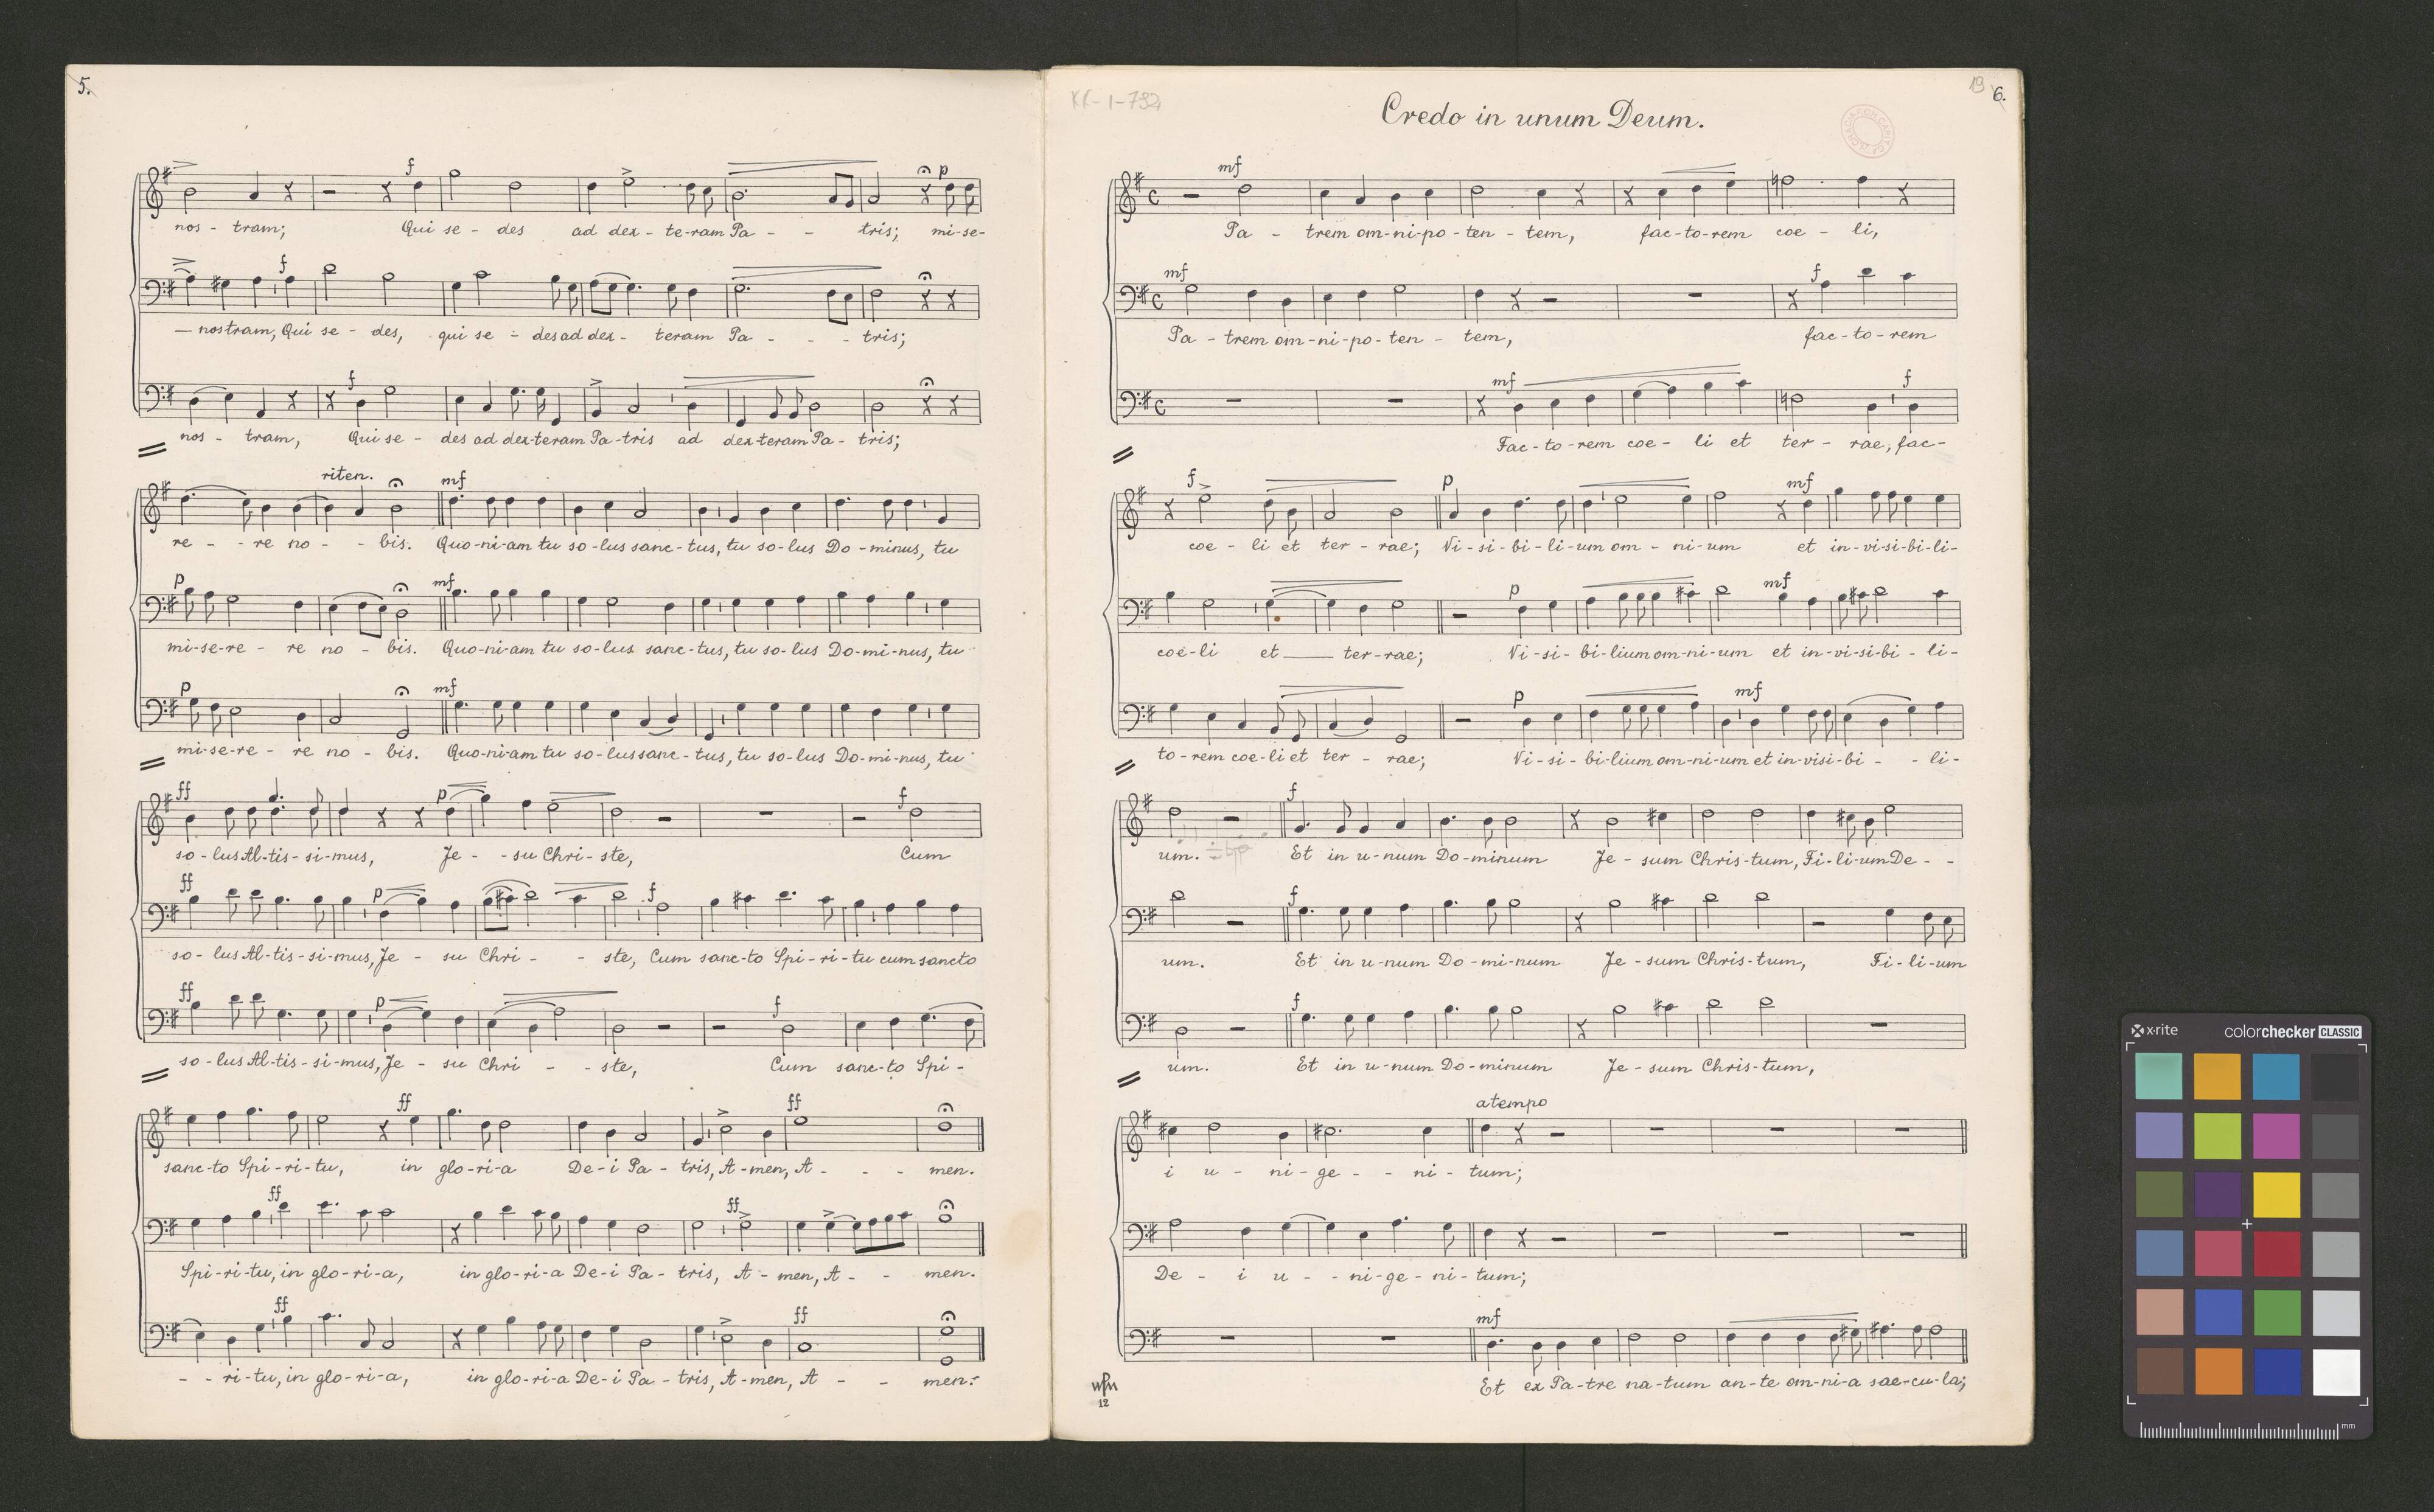 5.
f
f
p
nos - tram; Qui se - des ad dex - te-ram Pa - - tris; mi-se-
f
— nostram, Qui se - des, qui se - des ad dex - teram Pa - - - tris;
f
nos - tram, Qui se - des ad dex-teram Pa-tris ad dex-teram Pa - tris;
riten.
mf
re - - re no - - bis. Quo-ni-am tu so-lus sanc-tus, tu so-lus Do-minus, tu
p mf
mi-se-re - re no - bis. Quo-ni-am tu so-lus sanc-tus, tu so-lus Do-mi-nus, tu
p mf
mi-se-re - re no - bis. Quo-ni-am tu so-lus sanc-tus, tu so-lus Do-mi-nus, tu
ff p f
so-lus Al-tis-si-mus, Je - - su Chri-ste, Cum
ff p f
so-lus Al-tis-si-mus, Je - su Chri - - ste, Cum sanc-to Spi-ri-tu cum sancto
ff p f
so-lus Al-tis-si-mus, Je - su Chri - - ste, Cum sanc-to Spi-
ff ff
sanc-to Spi-ri-tu, in glo-ri-a De-i Pa-tris, A-men, A - - - men.
ff ff
Spi-ri-tu, in glo-ri-a, in glo-ri-a De-i Pa-tris, A-men, A - - men.
ff ff
- - ri-tu, in glo-ri-a, in glo-ri-a De-i Pa-tris, A-men, A - - men.
KK-1-792
19
6.
Credo in unum Deum.
mf
Pa - trem om-ni-po-ten-tem, fac-to-rem coe - li,
mf f
Pa - trem om-ni-po-ten - tem, fac-to-rem
mf f
Fac-to-rem coe - li et ter - rae, fac-
f p mf
coe - li et ter - rae; Vi-si-bi-li-um om-ni-um et in-vi-si-bi-li-
p mf
coe-li et — ter-rae; Vi-si-bi-lium om-ni-um et in-vi-si-bi-li-
p mf
to-rem coe-li et ter - rae; Vi-si-bi-lium om-ni-um et in-visi-bi - - li-
f
um. Et in u-num Do-minum Je-sum Chris-tum, Fi-li-um De - -
f
um. Et in u-num Do-mi-num Je-sum Chris-tum, Fi-li-um
f
um. Et in u-num Do-minum Je-sum Chris-tum,
a tempo
i u - ni-ge - - ni-tum;
De - i u - - ni-ge-ni-tum;
mf
Et ex Pa-tre na-tum an-te om-ni-a sae-cu-la;
12
x·rite colorchecker CLASSIC
mm